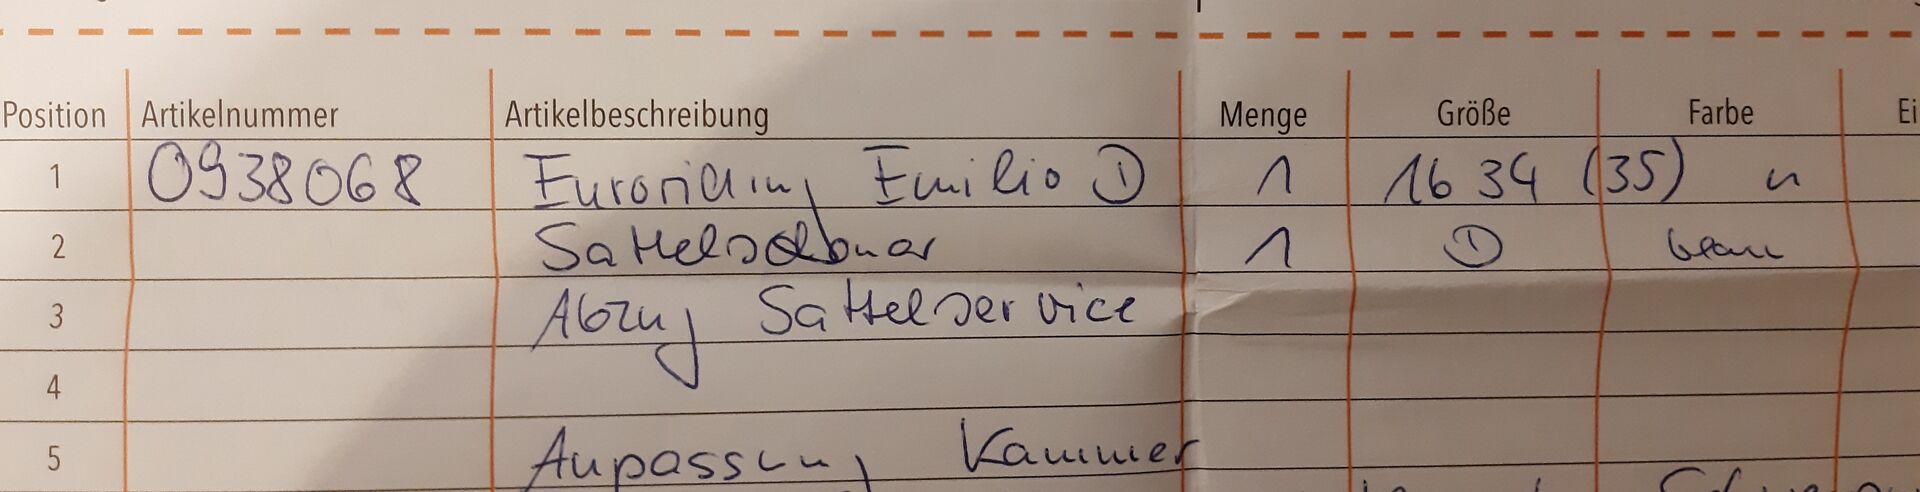 Position Artikelnummer Artikelbeschreibung Menge Größe Farbe Ei
1 0938068 Euroriding Emilio ① 1 16 34 (35) n
2 1 ①
3 Abzug Sattelservice
4
5 Anpassung Kammer